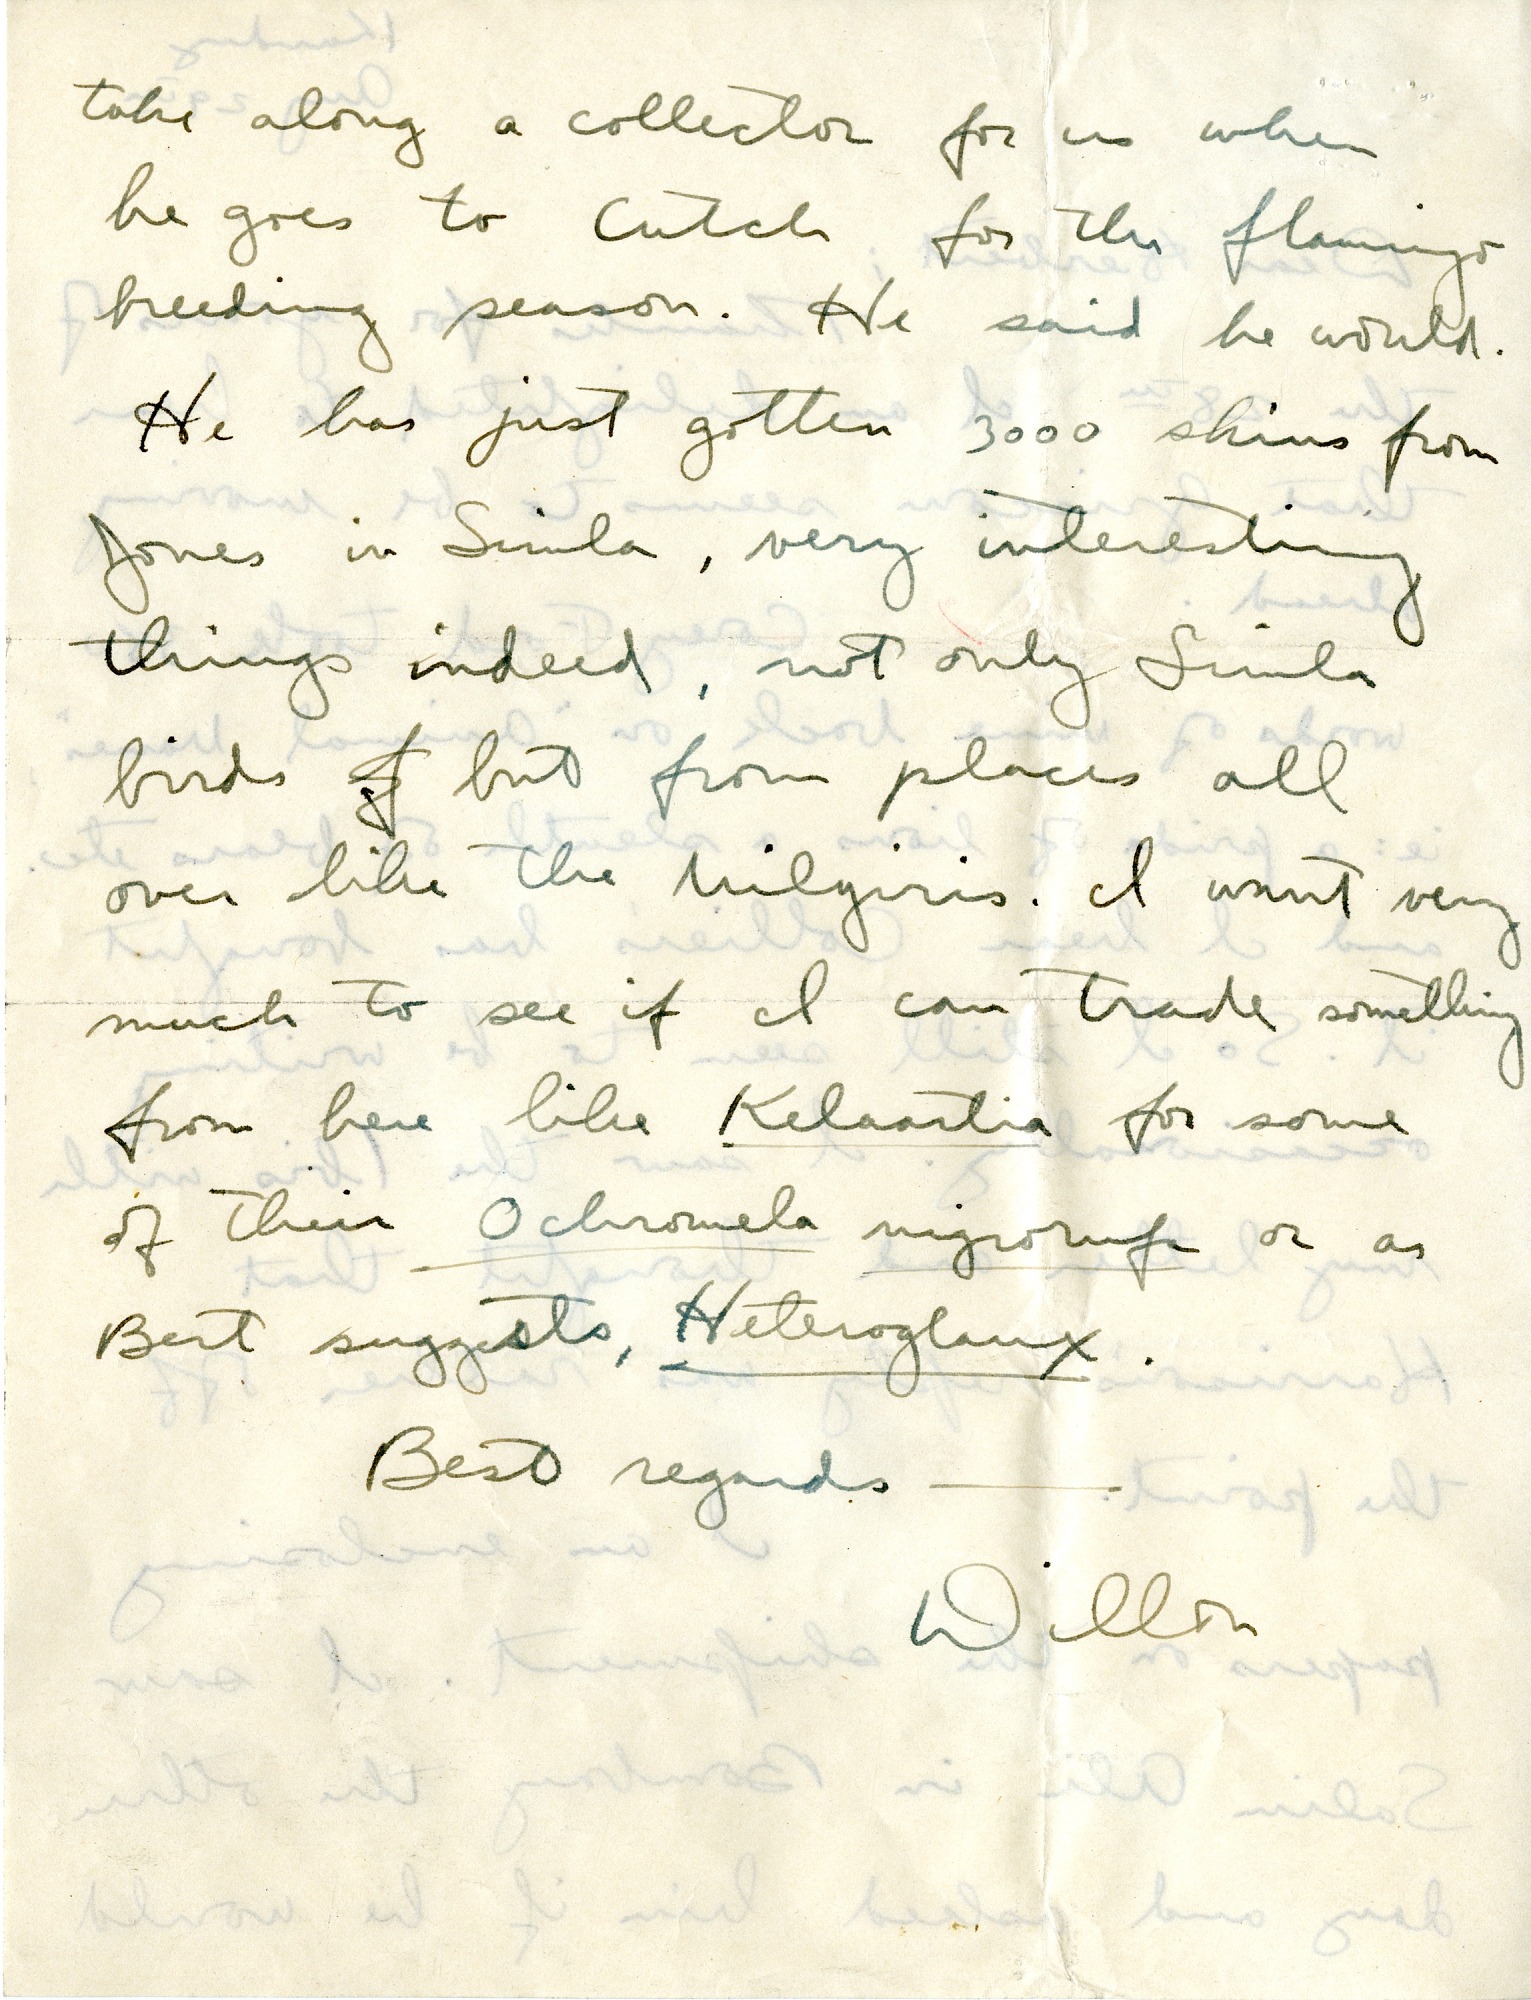 take along a collector for us when
he goes to Cutch for the flamingo
breeding season. He said he would.
He has just gotten 3000 skins from
Jones in Simla, very interesting
things indeed, not only Simla
birds but from places all
over like the Nilgiris. I want very
much to see if I can trade something
from here like Kelaartia for some
of their Ochromela nigrorufa or as
Bert suggests, Heteroglaux.
Best regards —
Dillon